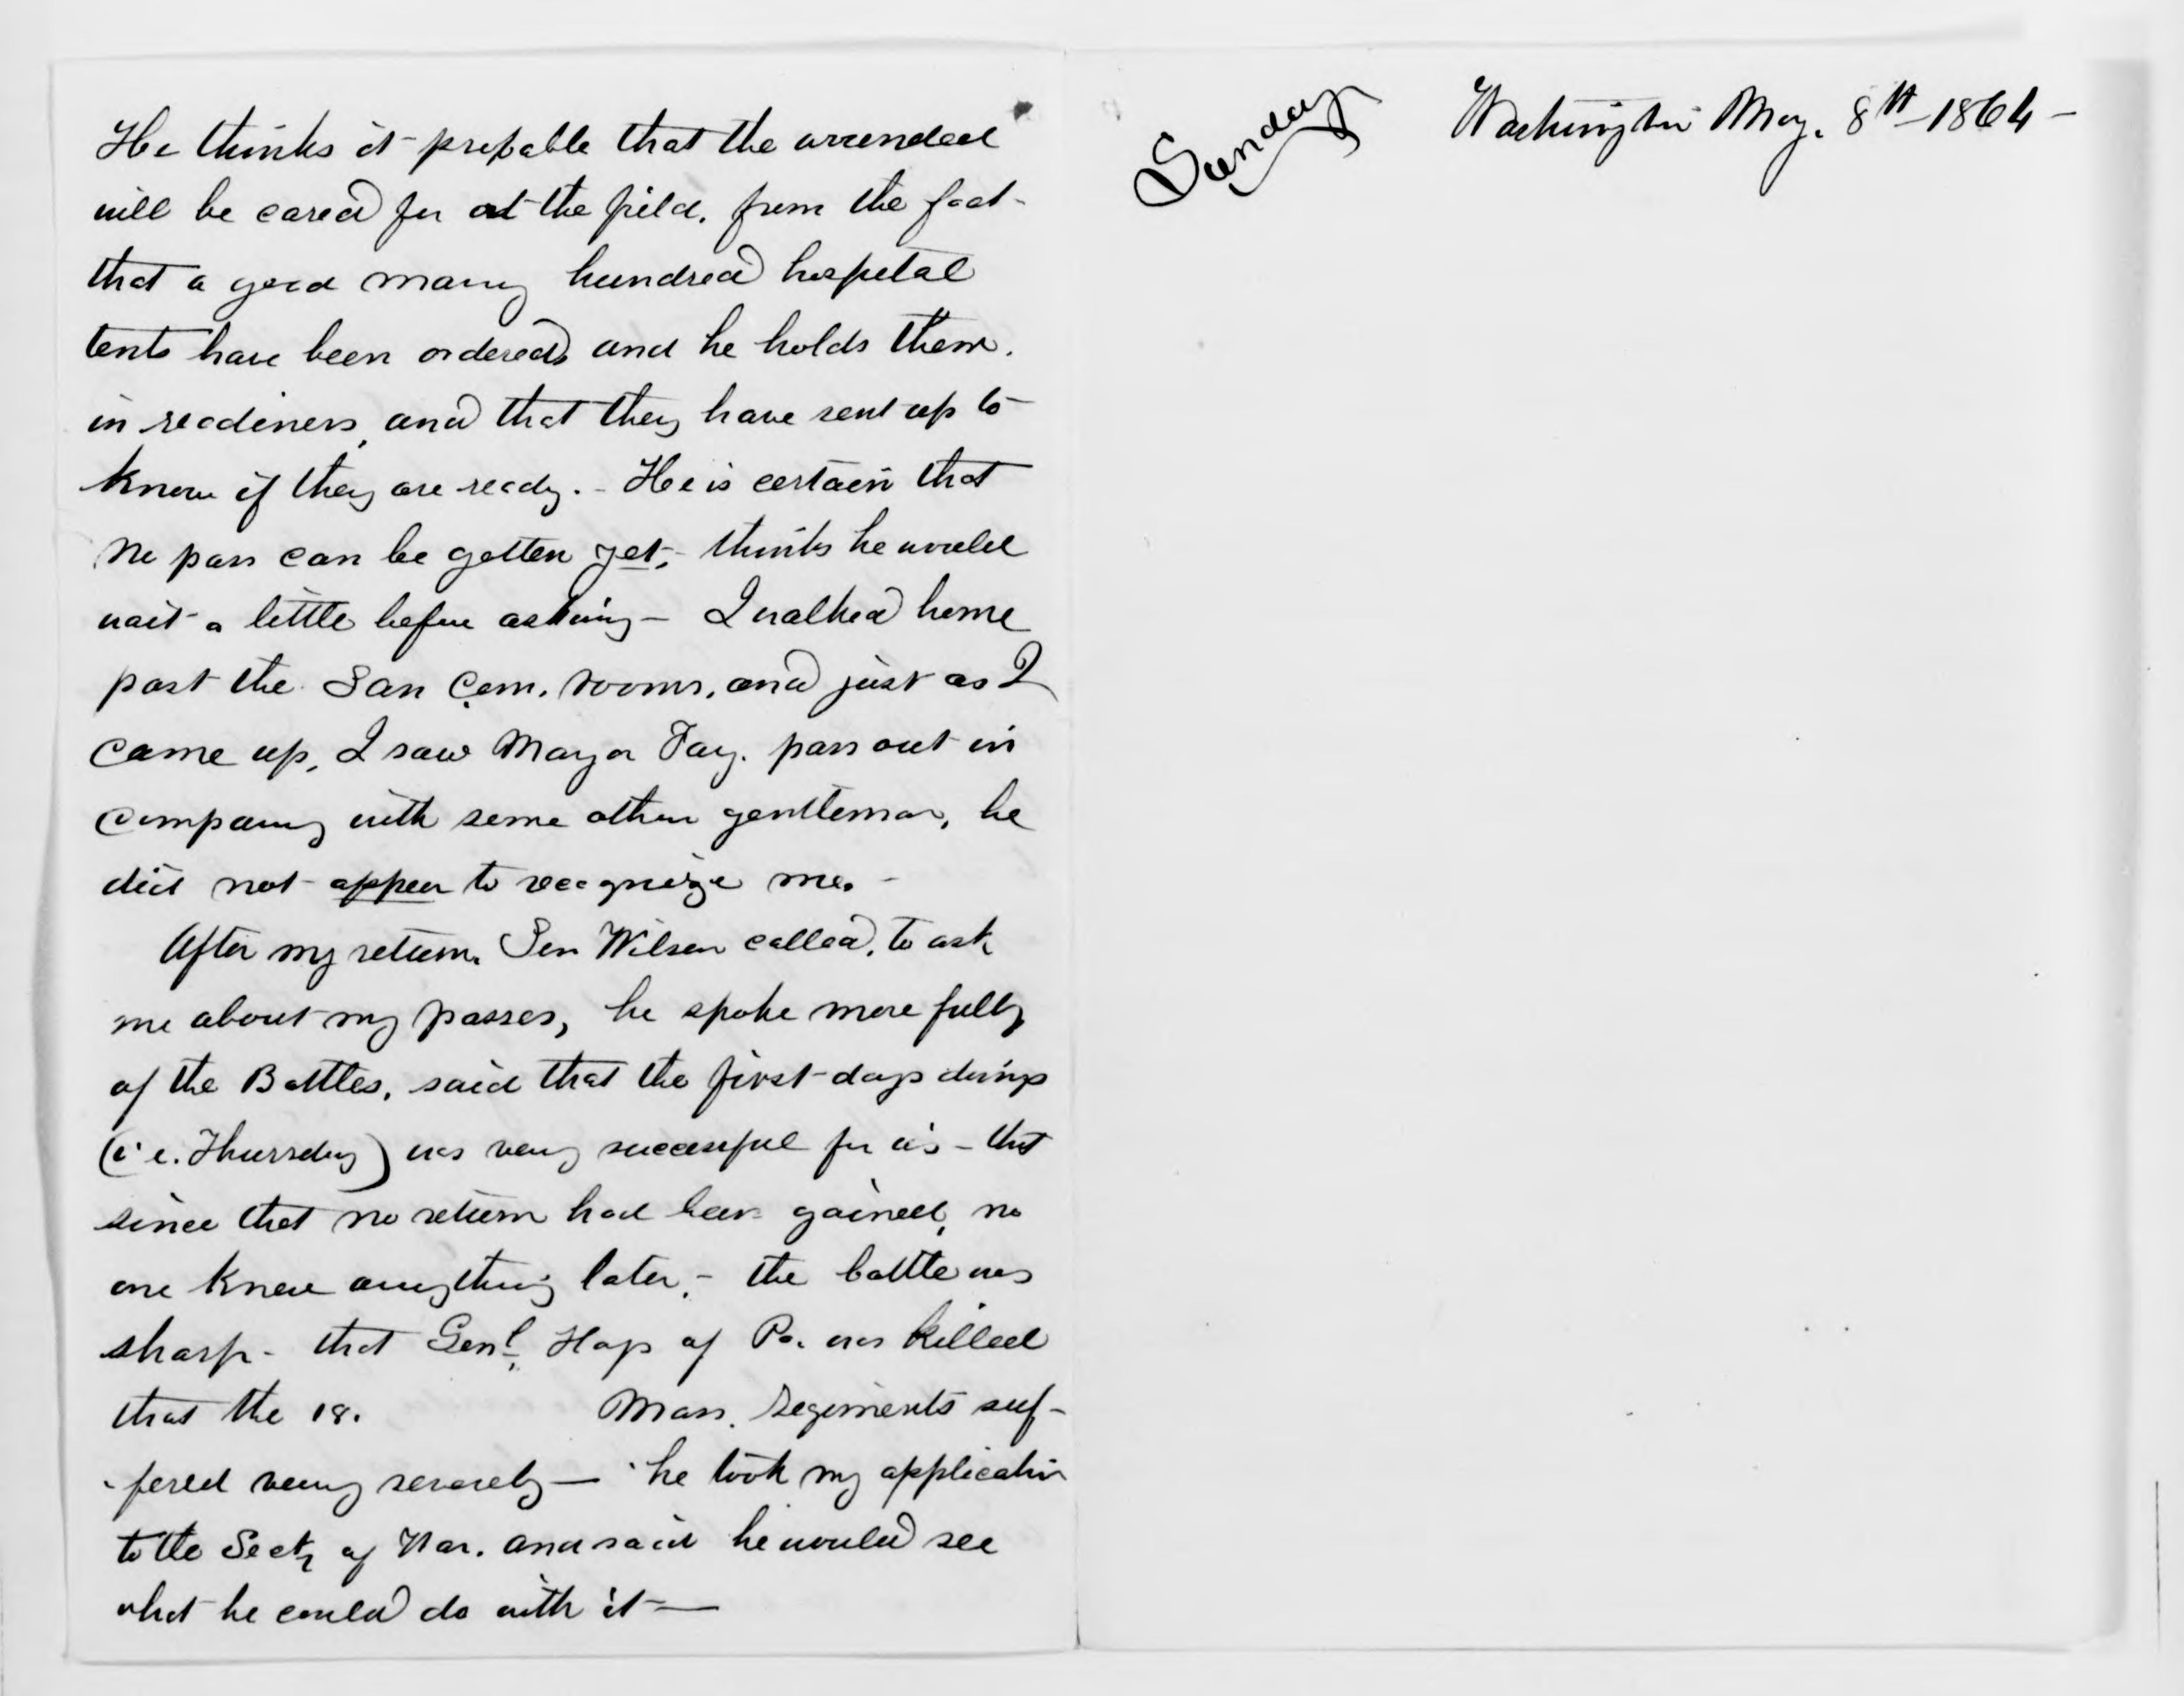 He thinks it probable that the wounded
will be cared for at the field. from the fact
that a good many hundred hospital
tents have been ordered and he holds them.
in readiness, and that they have sent up to
know if they are ready. - He is certain that
no pass can be gotten yet, - thinks he would
wait a little before asking - I walked home
past the San Com. rooms, and just as I
came up, I saw Mayor Fay. pass out in
company with some other gentleman, he
did not appear to recognize me. -
After my return. Sen Wilson called, to ask
me about my passes, he spoke more fully
of the Battles, said that the first days doings
(i.e. Thursday) was very successful for us - that
since that no return had been gained, no
one knew anything later, - the battle was
sharp - that Genl. Hays of Pa. was killed
that the 18. Mass. regiments suf-
-fered very severely - he took my application
to the Secty of War. and said he would see
what he could do with it -
Sunday
Washington May. 8th - 1864 -